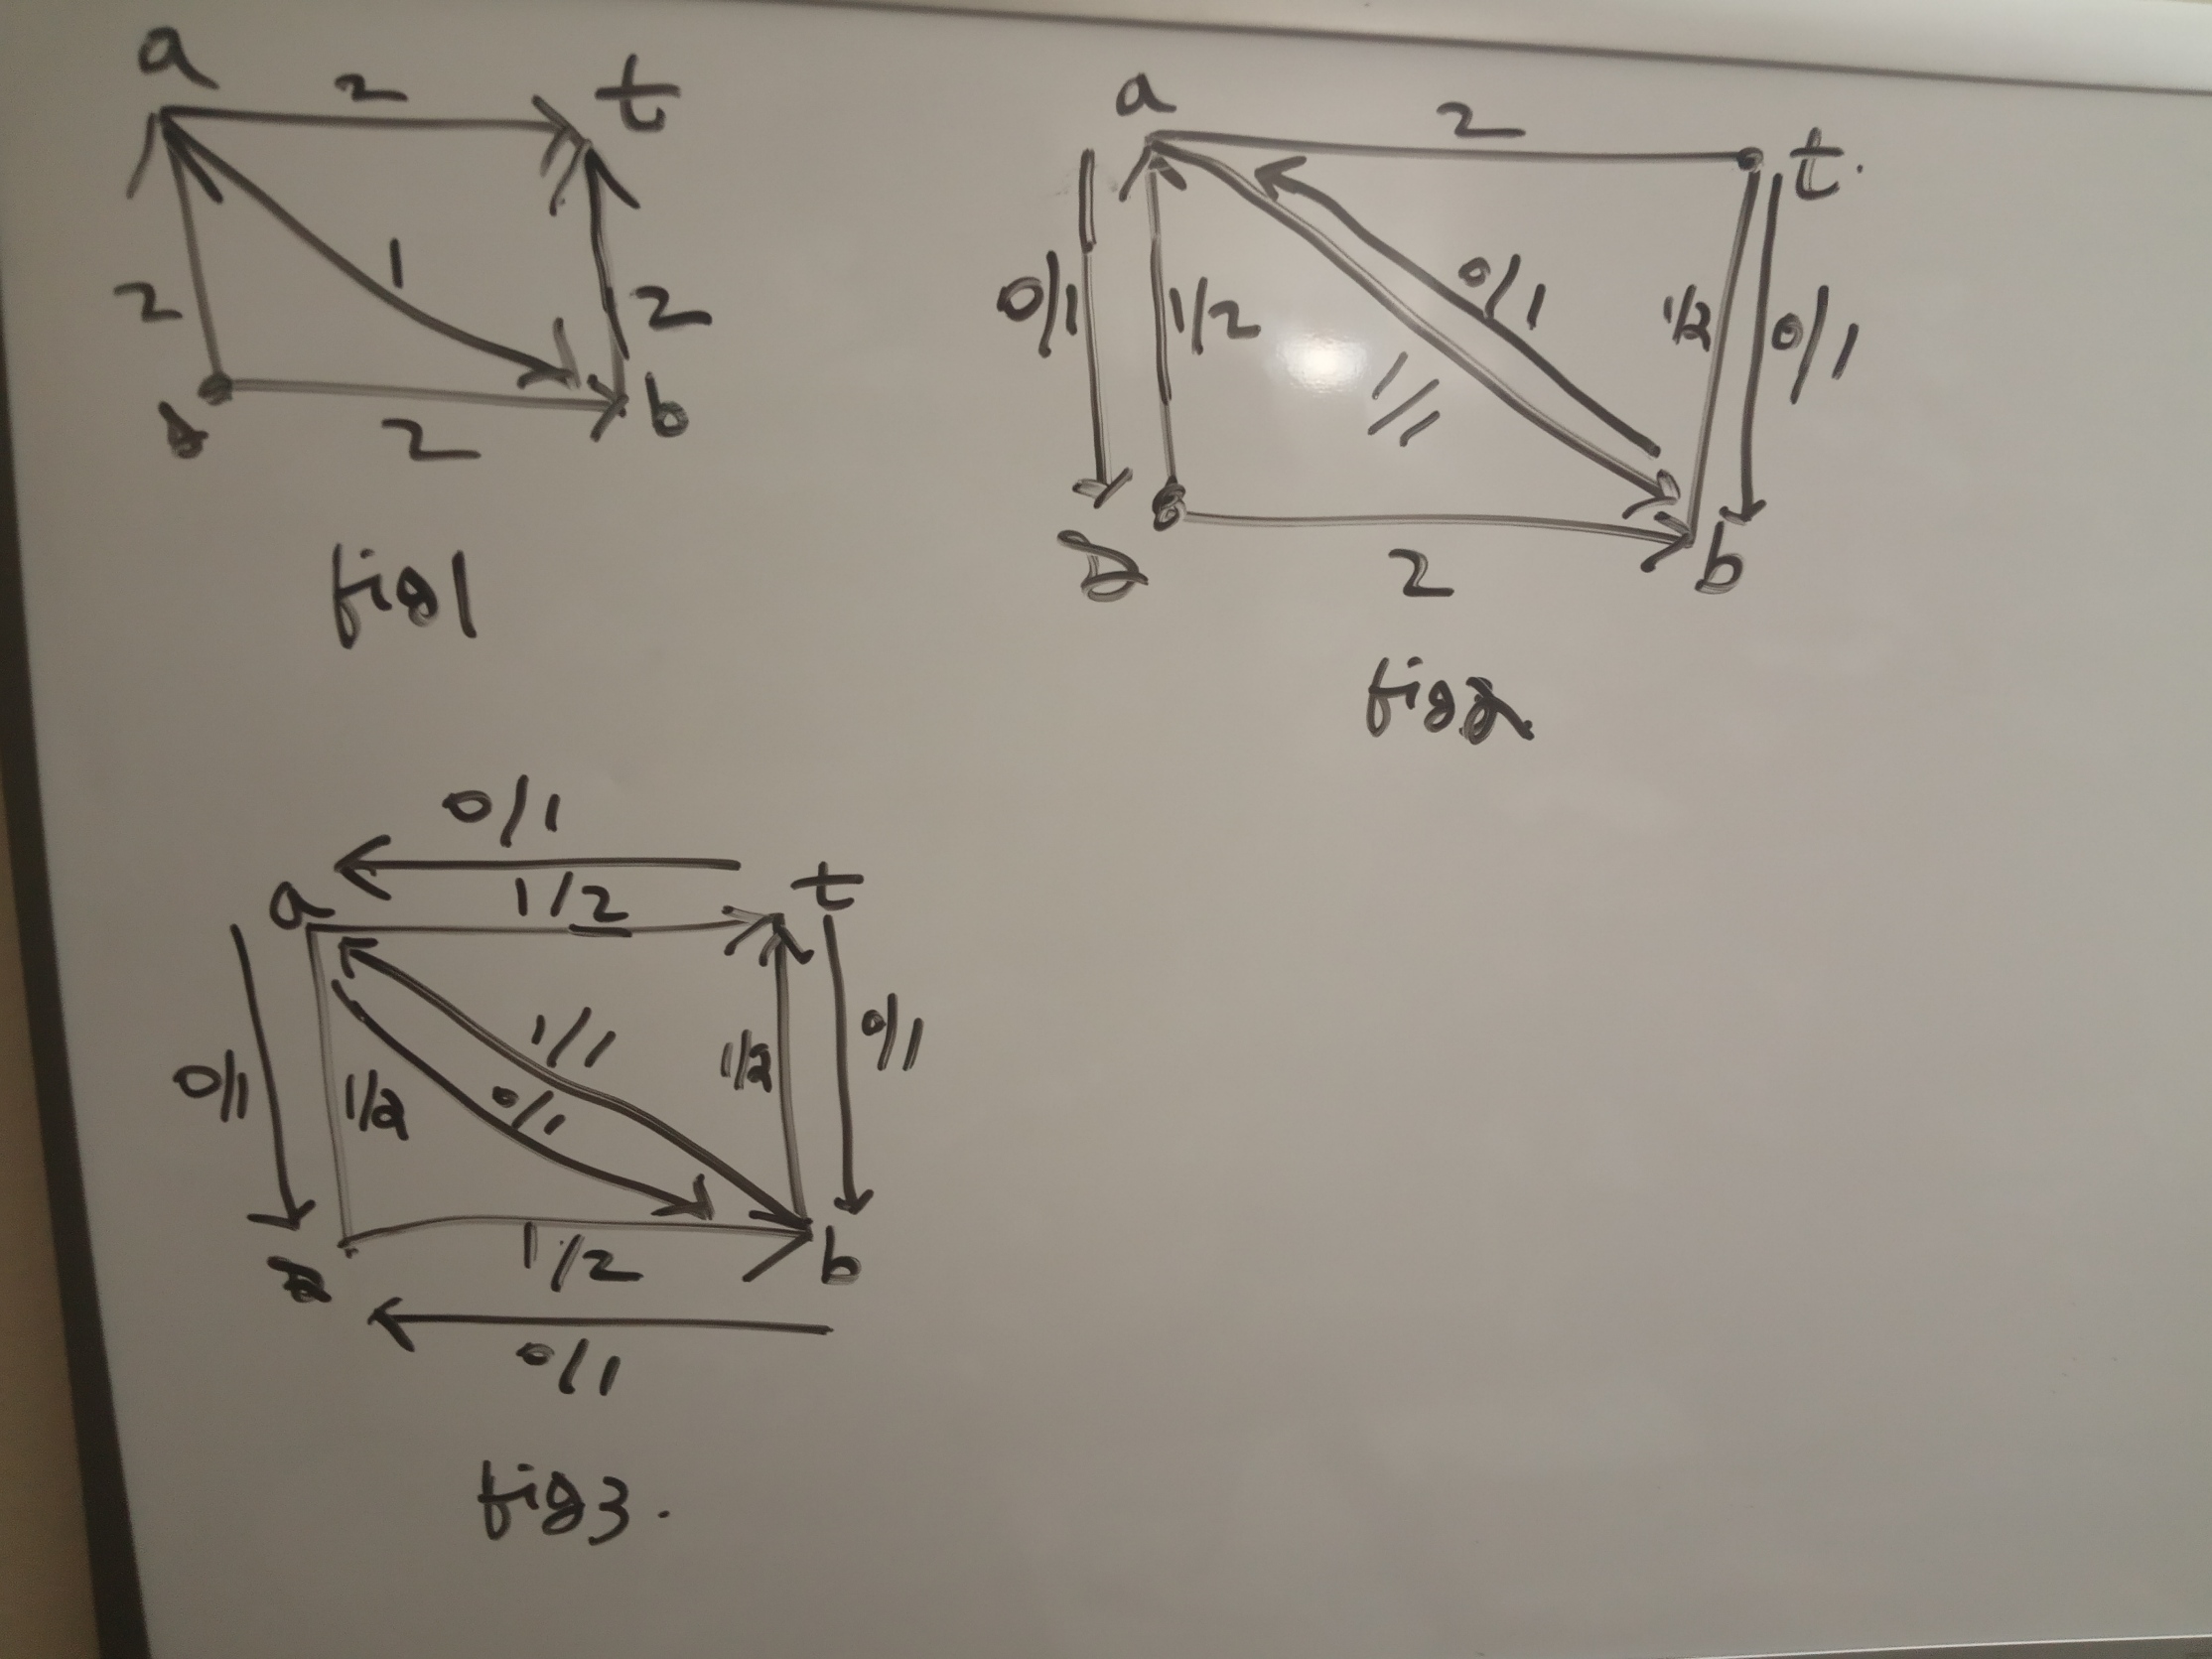 a 2 t
1
2 2
s 2 b
fig1
a 2 t.
0/1 1/2 0/1 1/2 0/1
1/1
s 2 b
fig2
0/1
a 1/2 t
1/1 1/2 0/1
0/1 1/2 0/1
s 1/2 b
0/1
fig3.